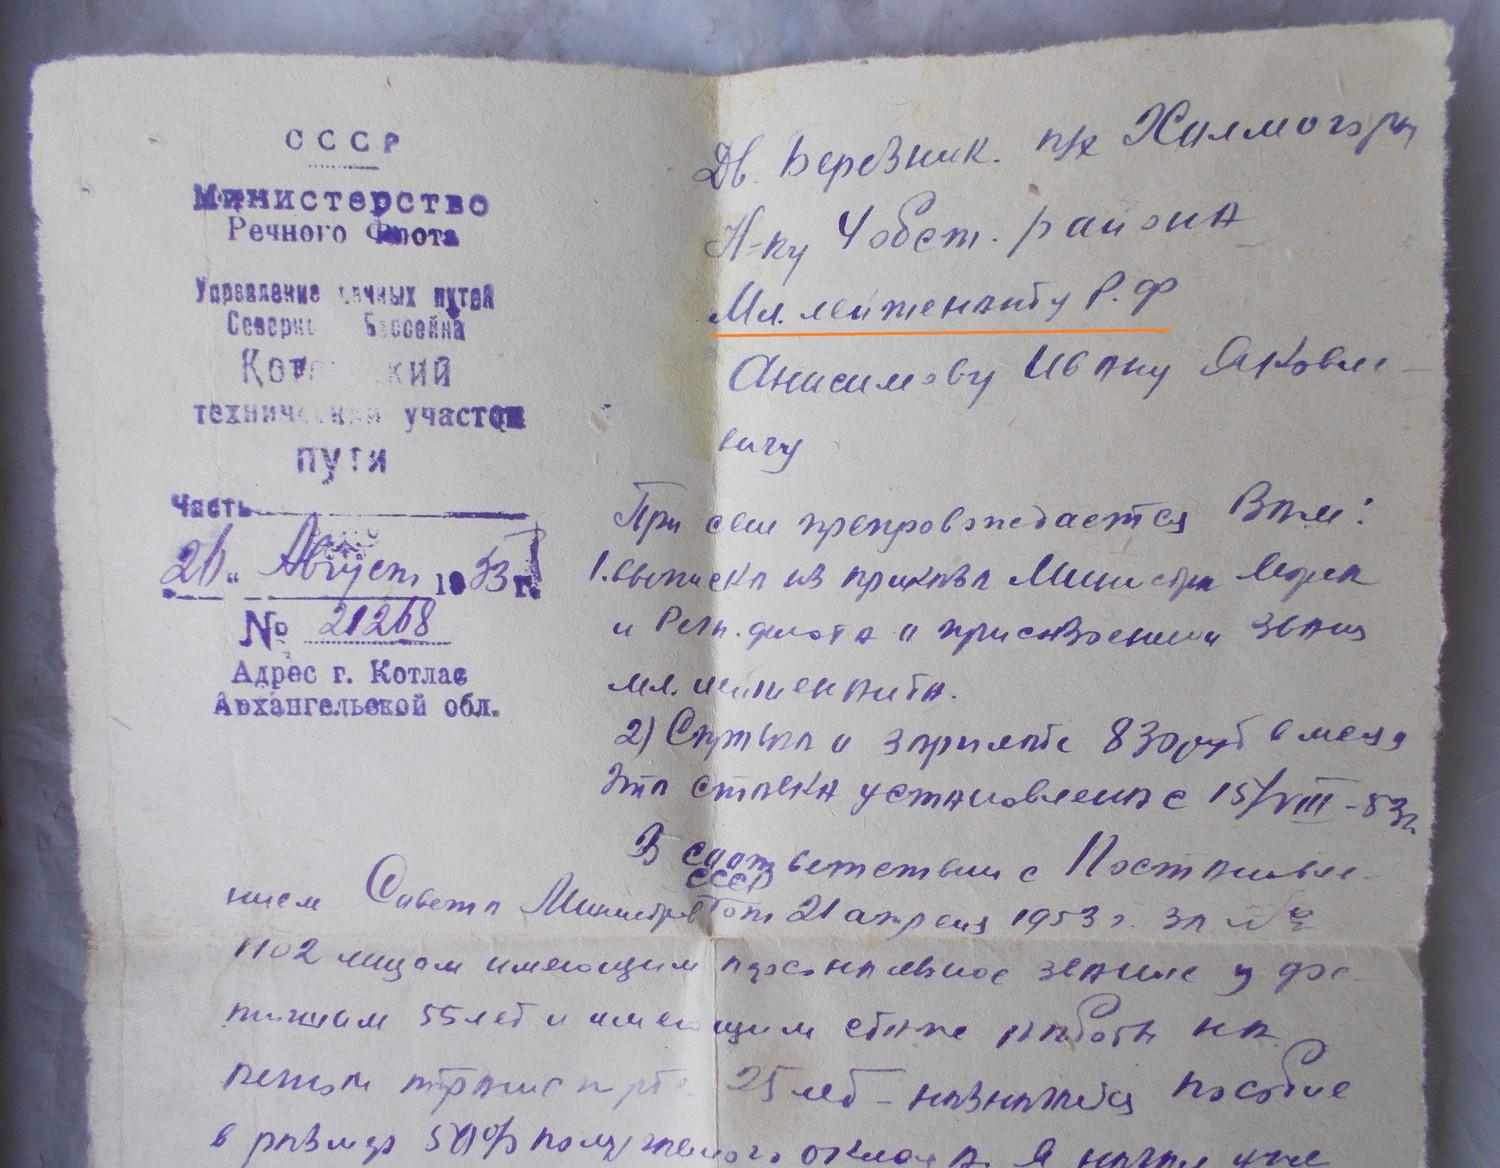 СССР
Министерство
Речного Флота
Управление путей
Бассейна
технический участок
пути
Часть
26 " Август 1953 г.
№ 21268
Адрес г. Котлас
Архангельской обл.
Дв. Березник. п/х Холмогоры
Н-ку 4 обст. района
Мл. лейтенанту Р.Ф
Анисимову Ивану Яковле-
вичу
При сем препровождается Вам:
1. выписка из приказа Министра Морск
и Реч. флота о присвоении звания
мл. лейтенанта.
2) Справка о зарплате 830 руб в месяц
Эта ставка установлена с 15/VIII-53г
В соответствии с Постановле-
нием Совета Министров СССР от 21 апреля 1953 г. за №
1102 лицам имеющим персональное звание и дос-
тигшим 55 лет и имеющим стаж работы на
речном транспорте 25 лет - назначается пособие
в размере 50% получаемого оклада.